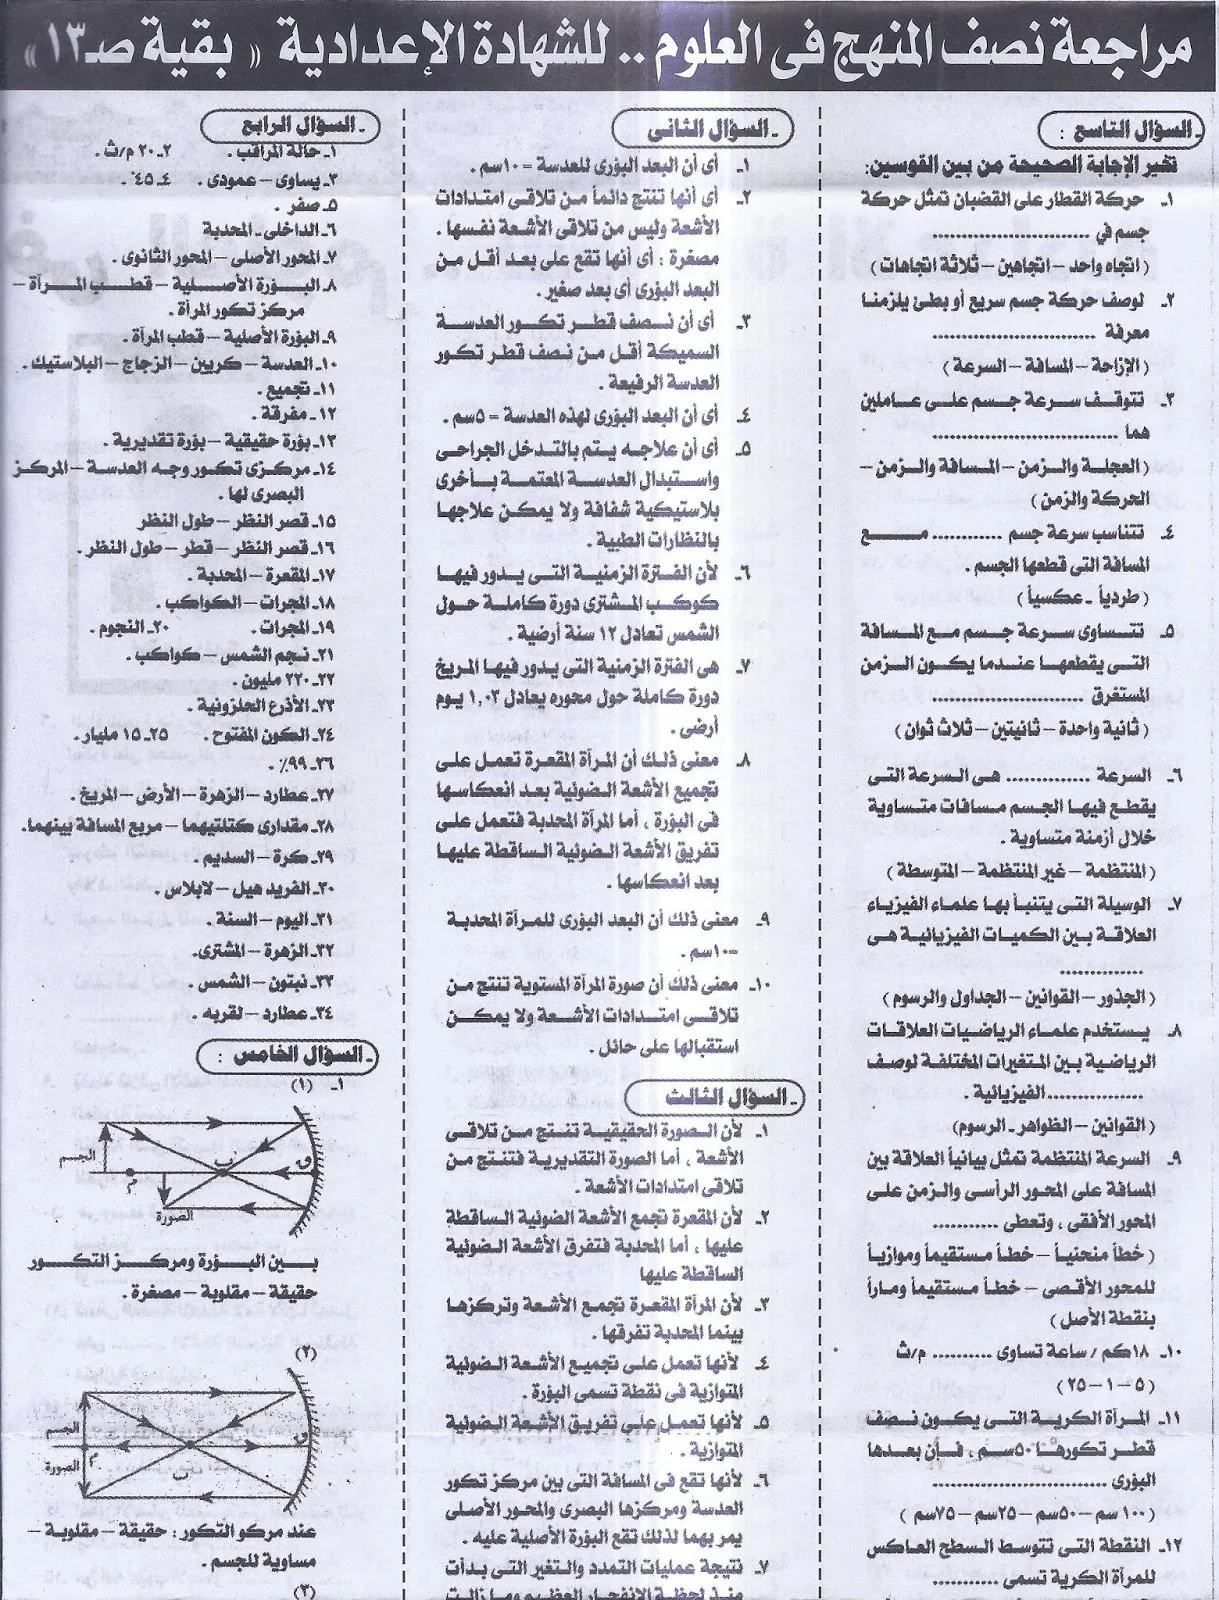 مراجعة نصف المنهج فى العلوم .. للشهادة الإعدادية « بقية صـ١٣ »
ـ السؤال التاسع :
تخير الإجابة الصحيحة من بين القوسين:
١ـ حركة القطار على القضبان تمثل حركة
جسم في ..............................
( اتجاه واحد – اتجاهين – ثلاثة اتجاهات)
٢ـ لوصف حركة جسم سريع أو بطئ يلزمنا
معرفة ..............................
( الإزاحة – المسافة – السرعة )
٣ـ تتوقف سرعة جسم على عاملين
هما ..............................
( العجلة والزمن – المسافة والزمن –
الحركة والزمن )
٤ـ تتناسب سرعة جسم ............ مع
المسافة التى قطعها الجسم .
( طردياً ـ عكسياً )
٥ـ تتساوى سرعة جسم مع المسافة
التى يقطعها عندما يكون الزمن
المستغرق ..................
( ثانية واحدة – ثانيتين – ثلاث ثوان )
٦ـ السرعة .............. هى السرعة التى
يقطع فيها الجسم مسافات متساوية
خلال أزمنة متساوية .
( المنتظمة – غير المنتظمة – المتوسطة )
٧ـ الوسيلة التى يتنبأ بها علماء الفيزياء
العلاقة بين الكميات الفيزيائية هى
..............
( الجذور – القوانين – الجداول والرسوم )
٨ـ يستخدم علماء الرياضيات العلاقات
الرياضية بين المتغيرات المختلفة لوصف
................الفيزيائية .
( القوانين – الظواهر ـ الرسوم)
٩ـ السرعة المنتظمة تمثل بيانياً العلاقة بين
المسافة على المحور الرأسى والزمن على
المحور الأفقى ، وتعطى ...........
( خطاً منحنياً – خطاً مستقيماً وموازياً
للمحور الأفقى – خطاً مستقيماً وماراً
بنقطة الأصل )
١٠ـ ١٨كم / ساعة تساوى .......... م/ث
( ٥ – ١ – ٢٥ )
١١ـ المرآة الكرية التى يكون نصف
قطر تكورها ٥٠سم ، فإن بعدها
البؤرى ..........................
( ١٠٠ سم – ٥٠سم – ٢٥سم – ٧٥سم )
١٢ـ النقطة التى تتوسط السطح العاكس
للمرآة الكرية تسمى ............
ـ السؤال الثانى
١ـ أى أن البعد البؤرى للعدسة = ١٠سم .
٢ـ أى أنها تنتج دائماً من تلاقى امتدادات
الأشعة وليس من تلاقى الأشعة نفسها .
مصغرة : أى أنها تقع على بعد أقل من
البعد البؤرى أى بعد صغير .
٣ـ أى أن نصف قطر تكور العدسة
السميكة أقل من نصف قطر تكور
العدسة الرفيعة .
٤ـ أى أن البعد البؤرى لهذه العدسة = ٥سم .
٥ـ أى أن علاجه يتم بالتدخل الجراحى
واستبدال العدسة المعتمة بأخرى
بلاستيكية شفافة ولا يمكن علاجها
بالنظارات الطبية .
٦ـ لأن الفترة الزمنية التى يدور فيها
كوكب المشترى دورة كاملة حول
الشمس تعادل ١٢ سنة أرضية .
٧ـ هى الفترة الزمنية التى يدور فيها المريخ
دورة كاملة حول محوره يعادل ١,٠٣ يوم
أرضى .
٨ـ معنى ذلك أن المرآة المقعرة تعمل على
تجميع الأشعة الضوئية بعد انعكاسها
فى البؤرة ، أما المرآة المحدبة فتعمل على
تفريق الأشعة الضوئية الساقطة عليها
بعد انعكاسها .
٩ـ معنى ذلك أن البعد البؤرى للمرآة المحدبة
=١٠سم .
١٠ـ معنى ذلك أن صورة المرآة المستوية تنتج من
تلاقى امتدادات الأشعة ولا يمكن
استقبالها على حائل .
ـ السؤال الثالث
١ـ لأن الصورة الحقيقية تنتج من تلاقى
الأشعة ، أما الصورة التقديرية فتنتج من
تلاقى امتدادات الأشعة .
٢ـ لأن المقعرة تجمع الأشعة الضوئية الساقطة
عليها ، أما المحدبة فتفرق الأشعة الضوئية
الساقطة عليها
٣ـ لأن المرآة المقعرة تجمع الأشعة وتركزها
بينما المحدبة تفرقها .
٤ـ لأنها تعمل على تجميع الأشعة الضوئية
المتوازية فى نقطة تسمى البؤرة .
٥ـ لأنها تعمل على تفريق الأشعة الضوئية
المتوازية .
٦ـ لأنها تقع فى المسافة التى بين مركز تكور
العدسة ومركزها البصرى والمحور الأصلى
يمر بهما لذلك تقع البؤرة الأصلية عليه .
٧ـ نتيجة عمليات التمدد والتغير التى بدأت
منذ لحظة الانفجار العظيم وما زالت
ـ السؤال الرابع
١ـ حالة المراقب . ٢ـ ٢٠ م/ث .
٣ـ يساوى – عمودى . ٤ـ ٤٥ .
٥ـ صفر .
٦ـ الداخلى ـ المحدبة
٧ـ المحور الأصلى – المحور الثانوى .
٨ـ البؤرة الأصلية – قطب المرآة –
مركز تكور المرآة .
٩ـ البؤرة الأصلية – قطب المرآة .
١٠ـ العدسة – كريين – الزجاج – البلاستيك .
١١ـ تجميع .
١٢ـ مفرقة .
١٣ـ بؤرة حقيقية – بؤرة تقديرية .
١٤ـ مركزى تكور وجه العدسة – المركز
البصرى لها .
١٥ـ قصر النظر – طول النظر
١٦ـ قصر النظر – قطر – طول النظر .
١٧ـ المقعرة – المحدبة .
١٨ـ المجرات – الكواكب .
١٩ـ المجرات . ٢٠ـ النجوم .
٢١ـ نجم الشمس – كواكب .
٢٢ـ ٢٢٠ مليون .
٢٣ـ الأذرع الحلزونية .
٢٤ـ الكون المفتوح . ٢٥ـ ١٥ مليار .
٢٦ـ ٩٩٪ .
٢٧ـ عطارد – الزهرة – الأرض – المريخ .
٢٨ـ مقدارى كتلتيهما – مربع المسافة بينهما.
٢٩ـ كرة – السديم .
٣٠ـ الفريد هيل – لابلاس .
٣١ـ اليوم – السنة .
٣٢ـ الزهرة – المشترى.
٣٣ـ نبتون – الشمس .
٣٤ـ عطارد – لقربه .
ـ السؤال الخامس :
١ـ (١)
الجسم
م
ب
ق
الصورة
بين البؤرة ومركز التكور
حقيقة – مقلوبة – مصغرة .
(٢)
الجسم
م
ب
ق
الصورة
عند مركو التكور : حقيقة – مقلوبة –
مساوية للجسم .
(٣)